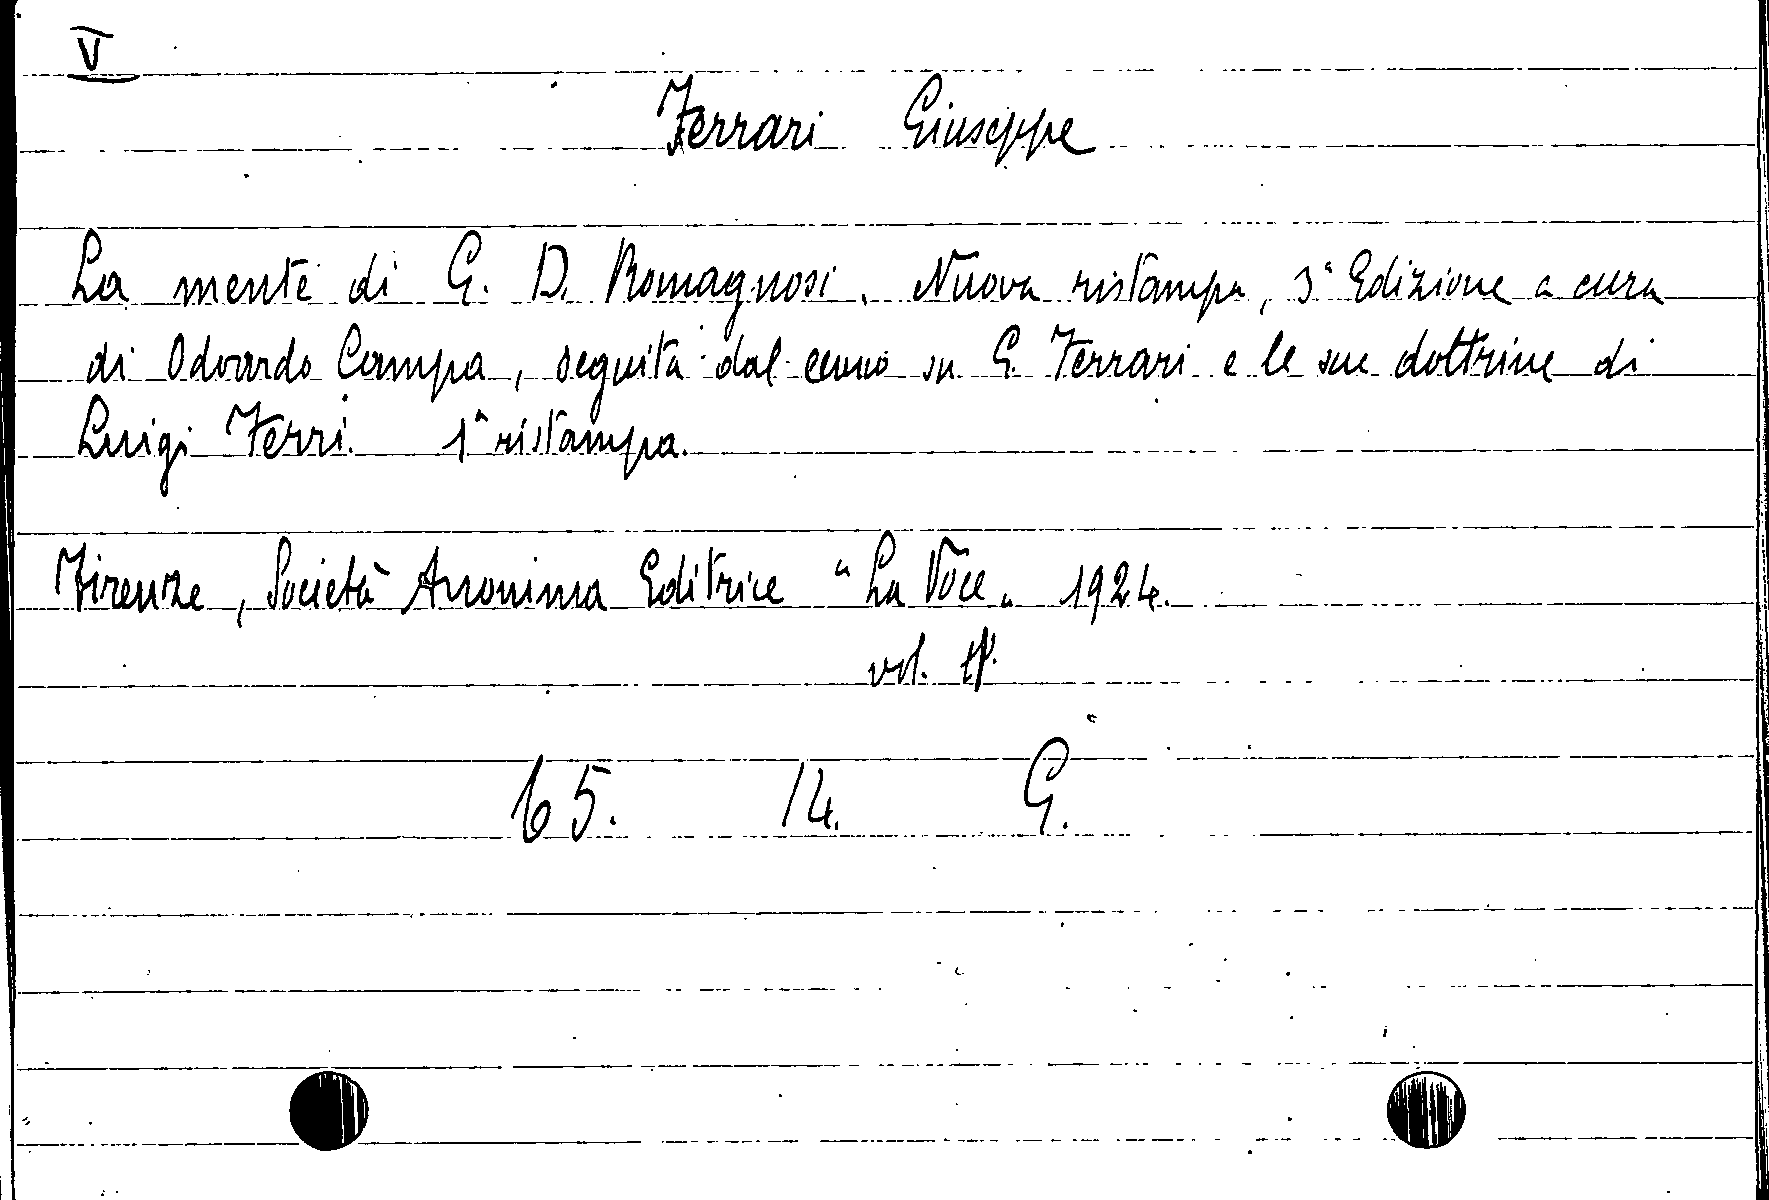 V
Ferrari Giuseppe
La mente di G. D. Romagnosi. Nuova ristampa, 3ª Edizione a cura
di Odoardo Campa, seguita dal cenno su G. Ferrari e le sue dottrine di
Luigi Ferri. 1ª ristampa.
Firenze, Società Anonima Editrice "La Voce" 1924.
vol.
65. 14. G.